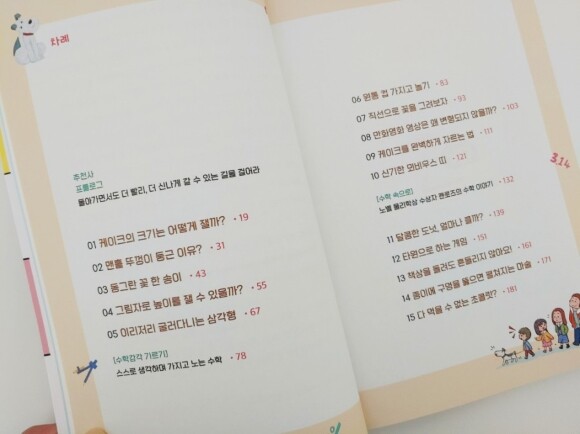 차례
추천사
프롤로그
돌아가면서도 더 빨리, 더 신나게 갈 수 있는 길을 걸어라
01 케이크의 크기는 어떻게 잴까? • 19
02 맨홀 뚜껑이 둥근 이유? • 31
03 동그란 꽃 한 송이 • 43
04 그림자로 높이를 잴 수 있을까? • 55
05 이리저리 굴러다니는 삼각형 • 67
[수학감각 기르기]
스스로 생각하며 가지고 노는 수학 • 78
06 원통 컵 가지고 놀기 • 83
07 직선으로 꽃을 그려보자 • 93
08 만화영화 영상은 왜 변형되지 않을까? • 103
09 케이크를 완벽하게 자르는 법 • 111
10 신기한 뫼비우스 띠 • 121
[수학 속으로]
노벨 물리학상 수상자 펜로즈의 수학 이야기 • 132
11 달콤한 도넛, 얼마나 클까? • 139
12 타원으로 하는 게임 • 151
13 책상을 돌려도 흔들리지 않아요! • 161
14 종이에 구멍을 뚫으면 펼쳐지는 마술 • 171
15 다 먹을 수 없는 초콜릿? • 181
3.14
%